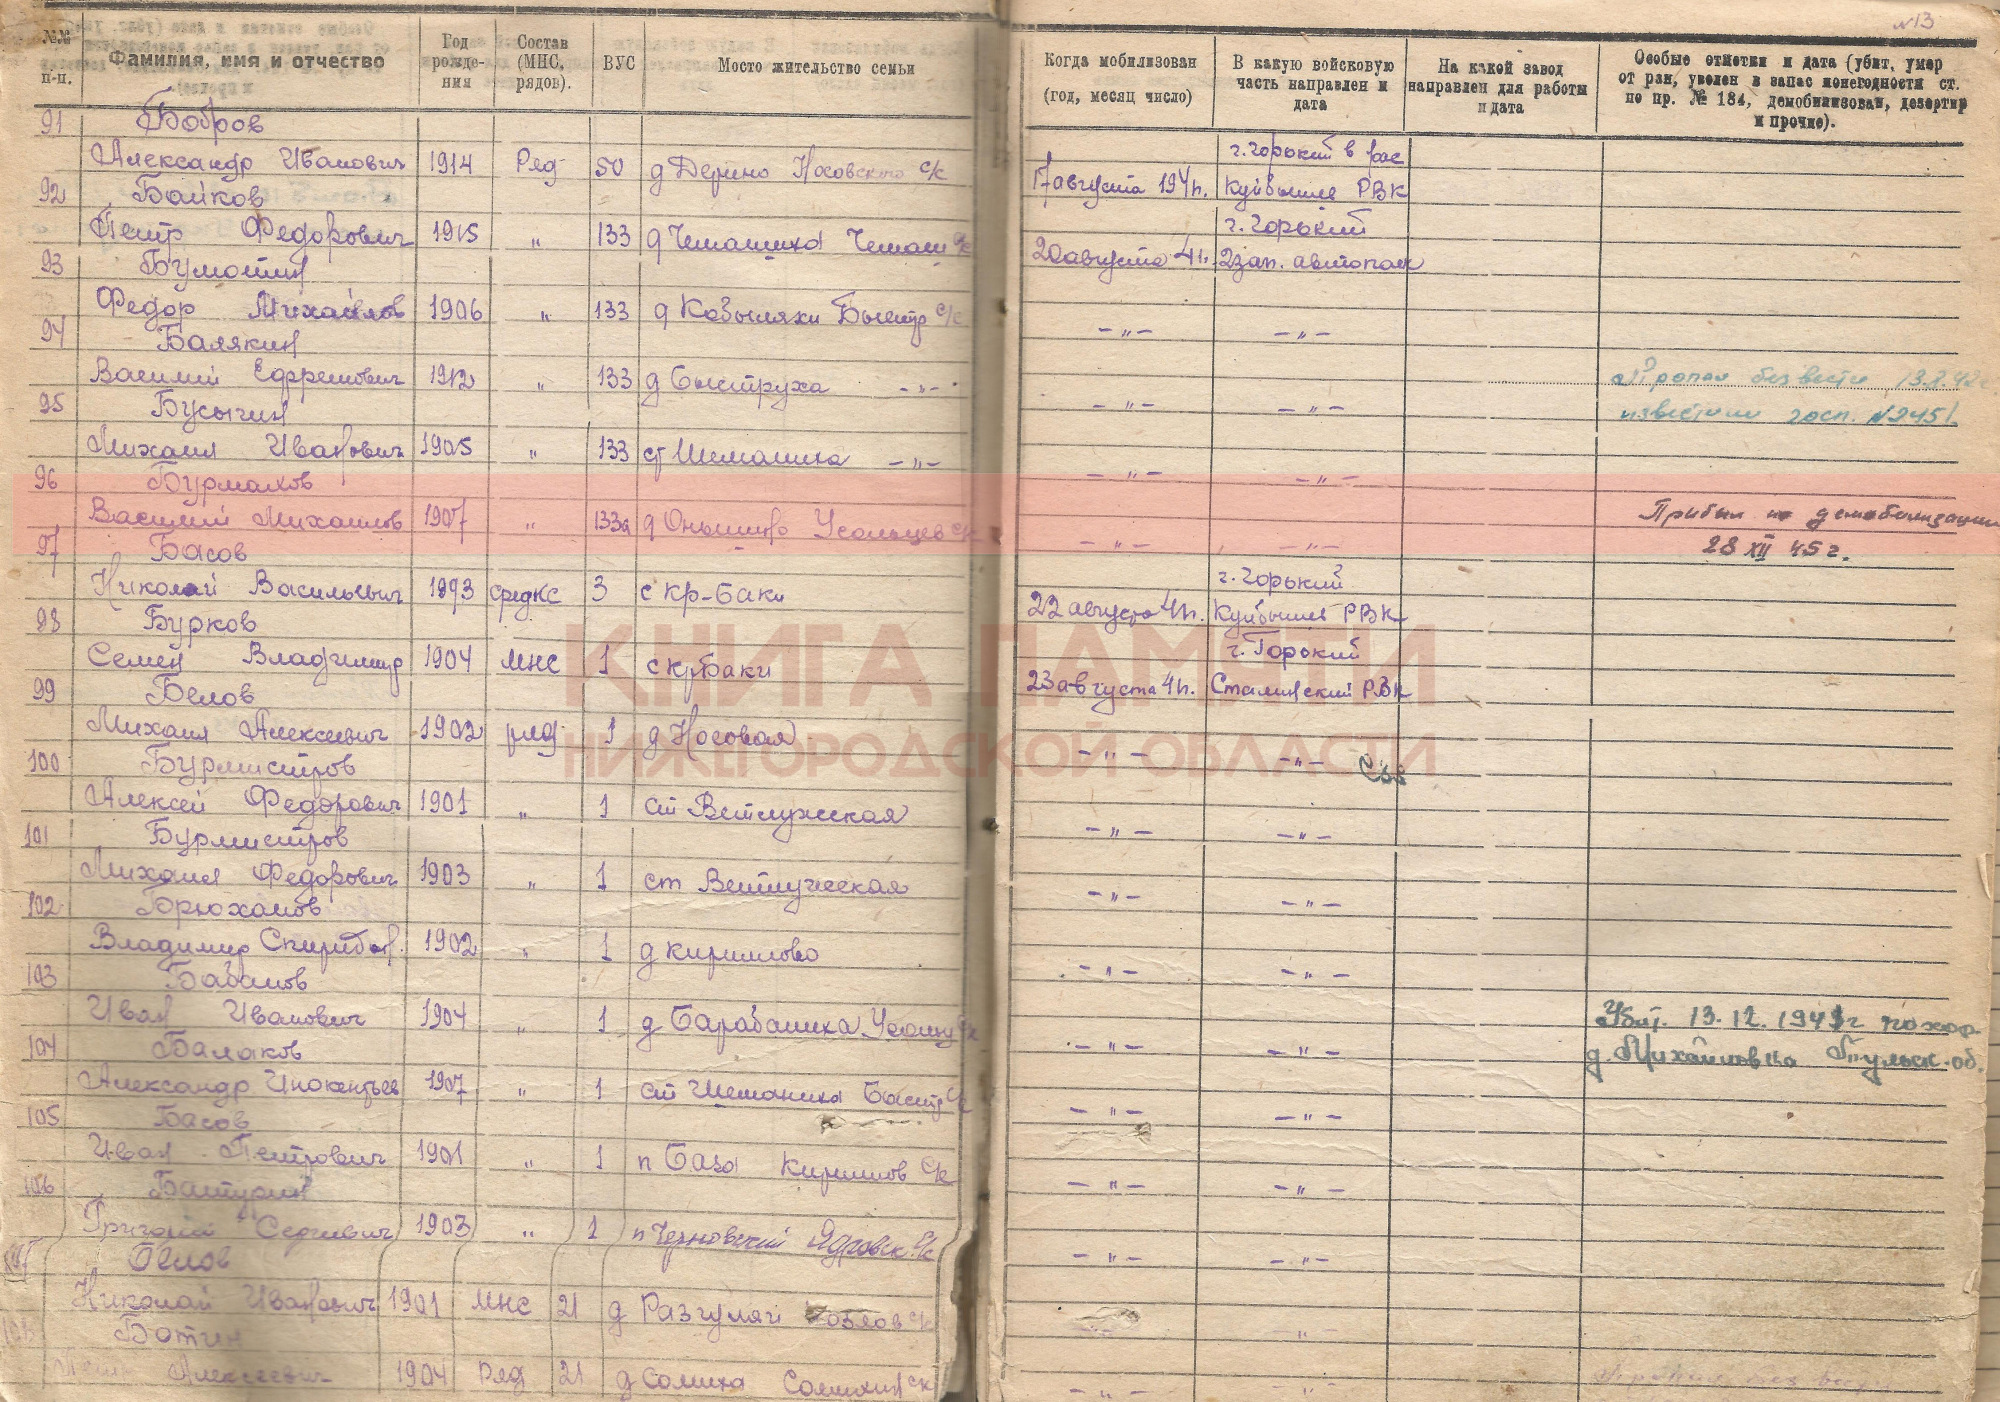 № 13
№№ п-п.
Фамилия, имя и отчество
Год рожде-ния
Состав (МНС, рядов).
ВУС
Место жительство семьи
Когда мобилизован (год, месяц число)
В какую войсковую часть направлен и дата
На какой завод направлен для работы и дата
Особые отметки и дата (убит, умер от ран, уволен в запас по негодности ст. по пр. № 184, демобилизован, дезертир и прочие).
91 Бобров
г. Горький в рас
Александр Иванович 1914 Ряд 50 д Дерино Носовского с/к
17 августа 1941г. Куйбышев РВК
92 Байков
г. Горький
Петр Федорович 1915 „ 133 д Чемашиха Чемаш с/к
20 августа 41г. 2 зап. автополк
93
Федор Михайлов 1906 „ 133 д Кобыляки Быстр с/к
– „ – – „ –
94 Балякин
Василий Ефремович 1912 „ 133 д Быструха – „ –
– „ – – „ –
Пропал без вести
известили госп. № 2451
95 Бусыгин
Михаил Иванович 1905 „ 133 ст Шеманиха – „ –
– „ – – „ –
96 Бурмаков
Василий Михайлов 1907 „ 133а д Онишино Усольцев с/к
– „ – – „ –
Прибыл по демобилизации
28 XII 45 г.
97 Басов
г. Горький
Николай Васильевич 1893 средкс 3 с кр-Баки
22 августа 41г. Куйбышев РВК
98 Бурков
г. Горький
Семен Владимир 1904 мнс 1 с кр Баки
23 августа 41г. Сталинский РВК
99 Белов
Михаил Алексеевич 1902 ряд 1 д Носовая
– „ – – „ –
100 Бурмистров
Алексей Федорович 1901 „ 1 ст Ветлужская
– „ – – „ –
101 Бурмистров
Михаил Федорович 1903 „ 1 ст Ветлужская
– „ – – „ –
102 Брюханов
Владимир 1902 „ 1 д Кириллово
– „ – – „ –
103
Иван Иванович 1904 „ 1 д Барабаниха с/к
– „ – – „ –
Убит. 13.12.1941г похор.
д. Михайловка Тульск. об.
104 Балаков
Александр Инокентьев 1907 „ 1 ст Шеманиха Быстр с/к
– „ – – „ –
105 Басов
Иван Петрович 1901 „ 1 п База Кириллов с/к
– „ – – „ –
106 Батурин
Григорий Сергеевич 1903 „ 1 п Черновский Ядровск. с/к
– „ – – „ –
107 Белов
Николай Иванович 1901 мнс 21 д Разгуляй Козлов с/к
„
108 Ботин
Алексеевич 1904 Ряд 21 д Сомиха Сомихин ск
– „ – „
Пропал без вести
КНИГА ПАМЯТИ
НИЖЕГОРОДСКОЙ ОБЛАСТИ